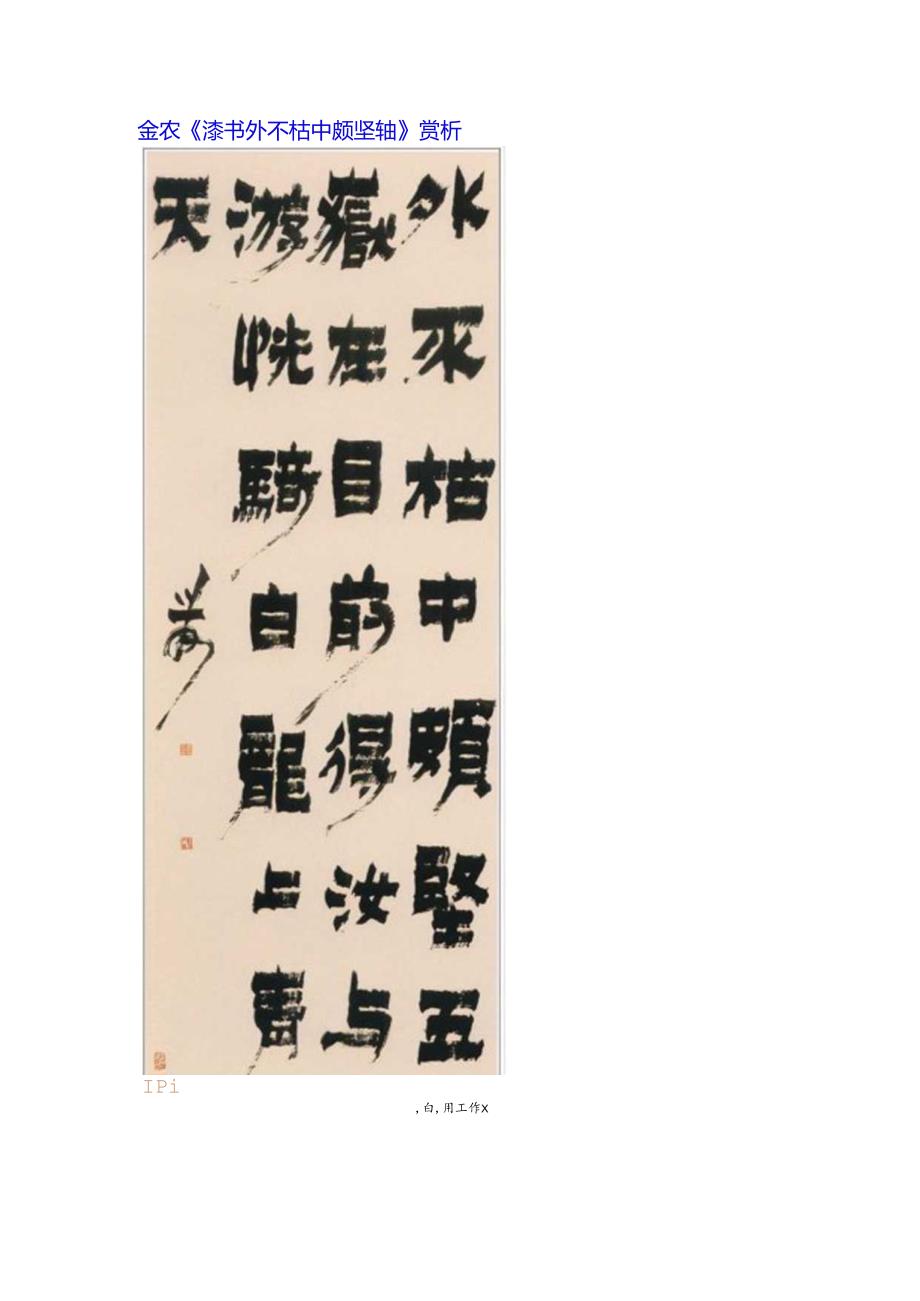 金农《漆书外不枯中颇坚轴》赏析
外不枯中頗堅五
嶽在目前得汝与
游恍騎白龍上青
天
IPi
,白,用工作x